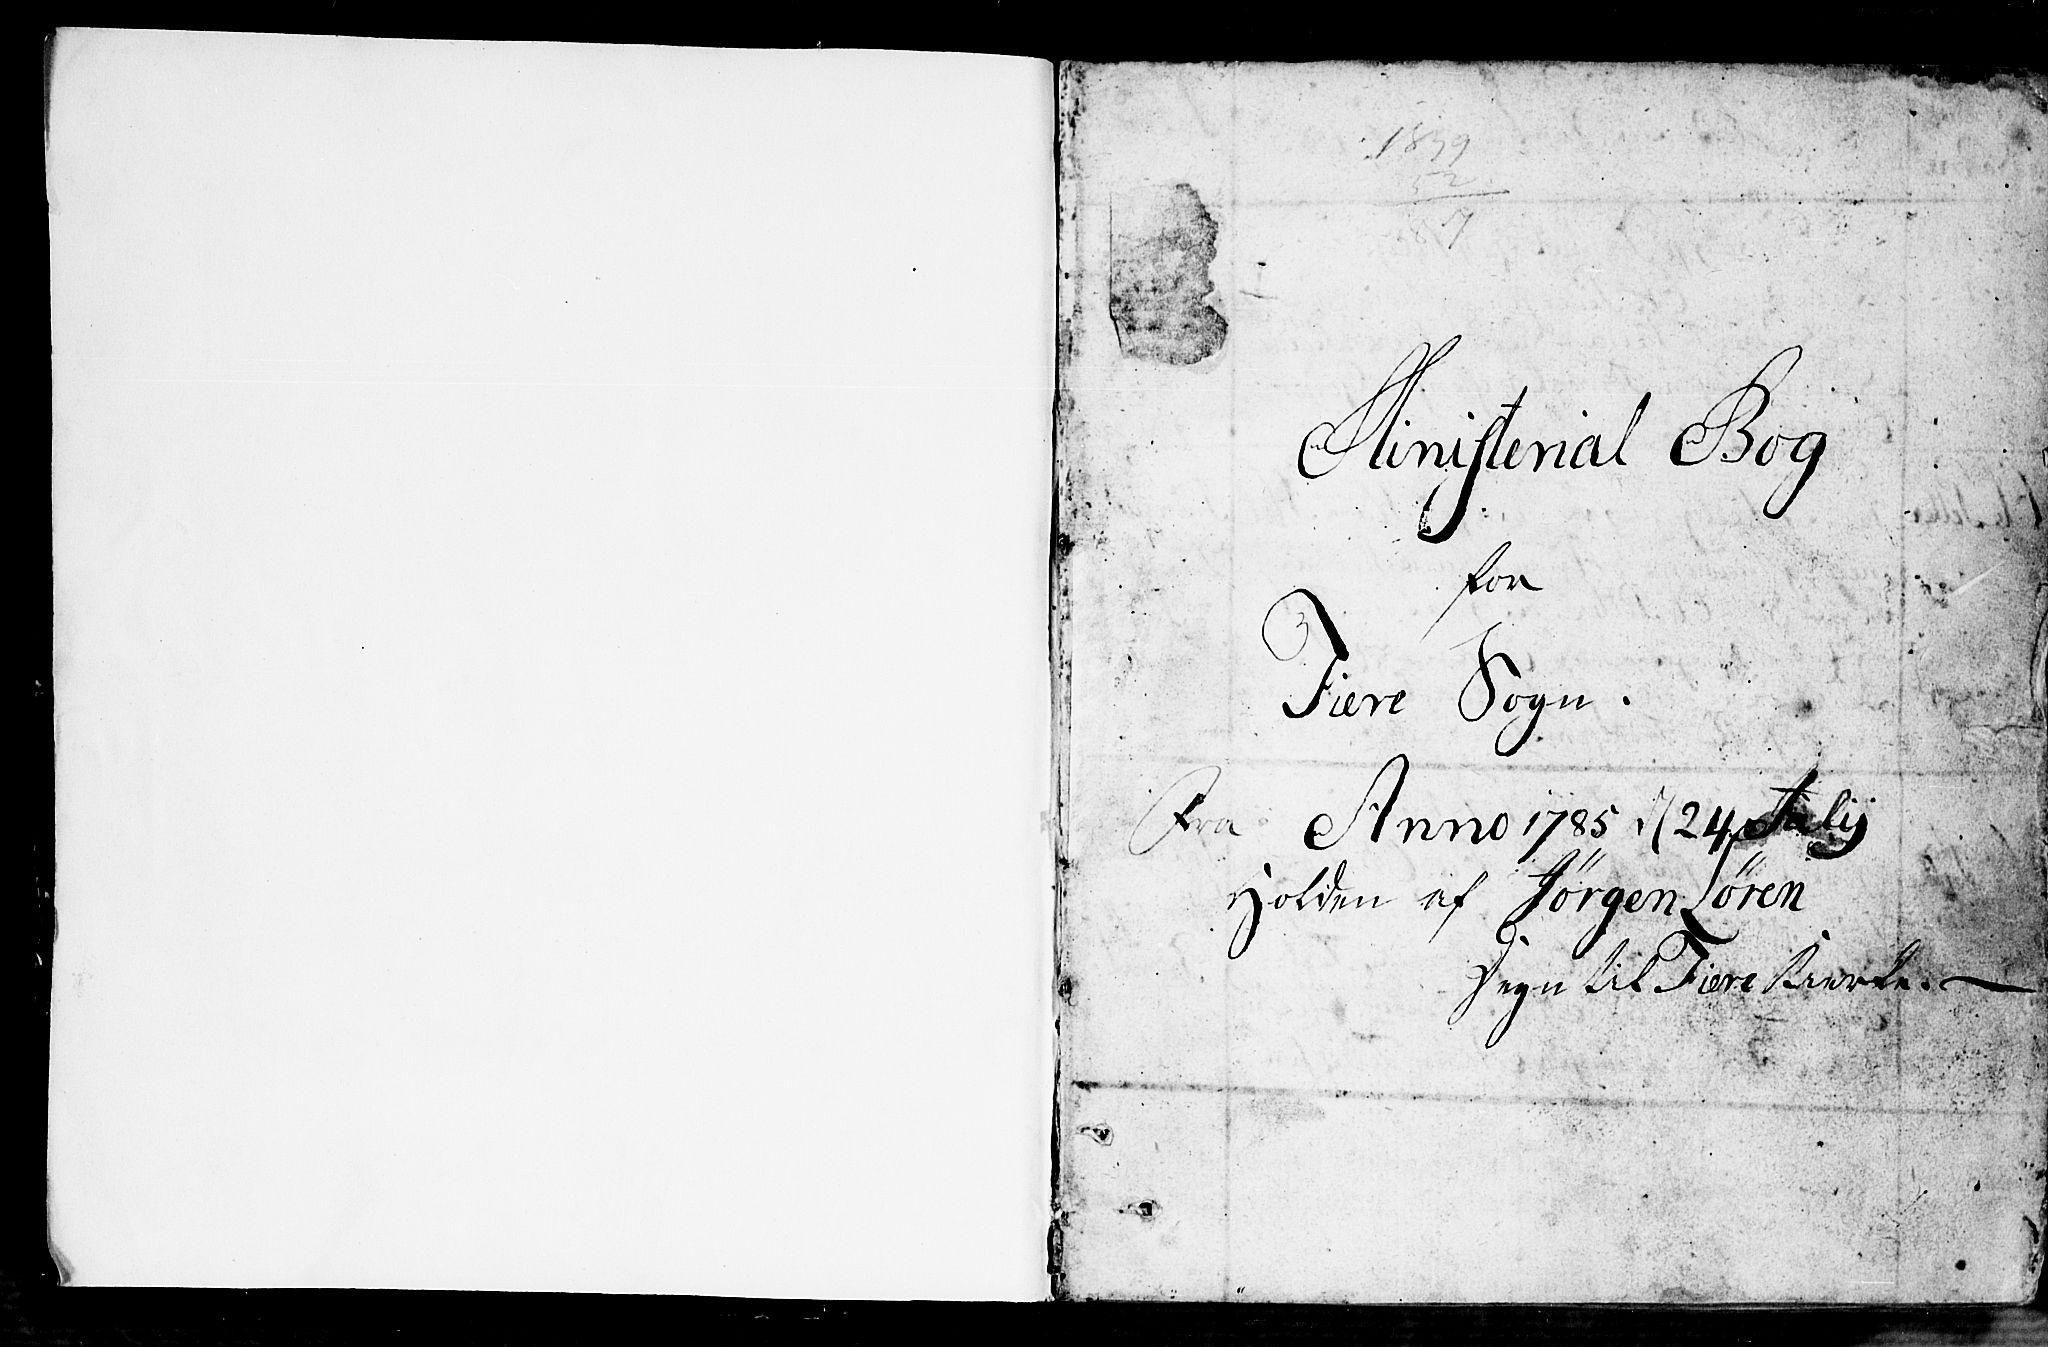 1839
52
87
Ministerial Bog
for
Fiere Sogn.
Fra Anno 1785 d 24 Julij
Holden af Jörgen Sören
Degn til Fiere Kierke.